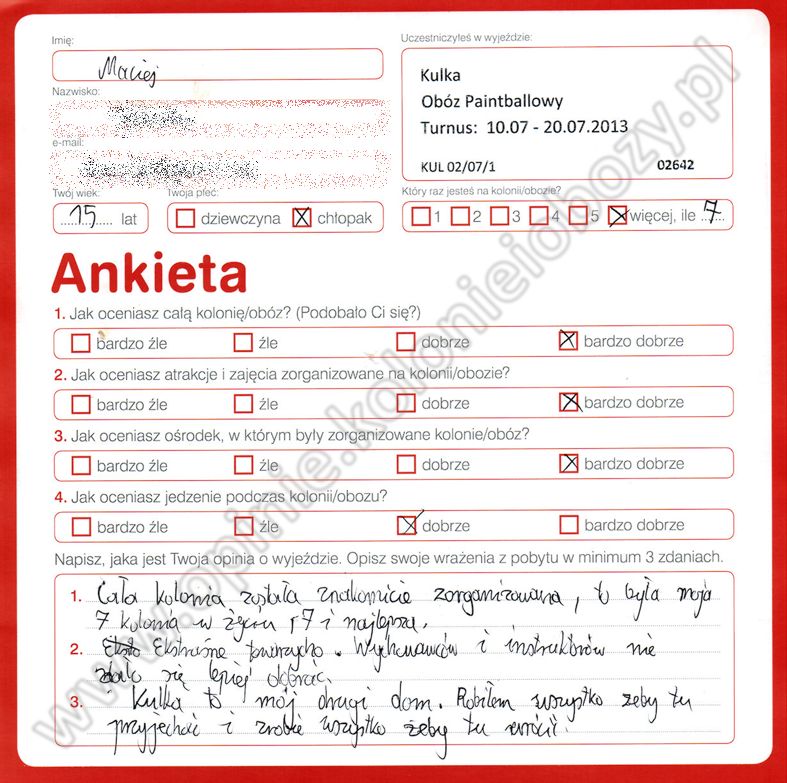 Imię:
Maciej
Uczestniczyłeś w wyjeździe:
Kulka
Obóz Paintballowy
Turnus: 10.07 - 20.07.2013
KUL 02/07/1 02642
Nazwisko:
e-mail:
Twój wiek:
15 lat
Twoja płeć:
dziewczyna chłopak
Który raz jesteś na kolonii/obozie?
1 2 3 4 5 więcej, ile 7
Ankieta
1. Jak oceniasz całą kolonię/obóz? (Podobało Ci się?)
bardzo źle źle dobrze bardzo dobrze
2. Jak oceniasz atrakcje i zajęcia zorganizowane na kolonii/obozie?
bardzo źle źle dobrze bardzo dobrze
3. Jak oceniasz ośrodek, w którym były zorganizowane kolonie/obóz?
bardzo źle źle dobrze bardzo dobrze
4. Jak oceniasz jedzenie podczas kolonii/obozu?
bardzo źle źle dobrze bardzo dobrze
Napisz, jaka jest Twoja opinia o wyjeździe. Opisz swoje wrażenia z pobytu w minimum 3 zdaniach.
1. Cała kolonia została znakomicie zorganizowana, to była moja
7 kolonia w życiu i najlepsza.
2. Ekstraśne towarzycho. Wychowawców i instruktorów nie
dało się lepiej dobrać.
3. Kulka to mój drugi dom. Robiłem wszystko żeby tu
przyjechać i zrobię wszystko żeby tu wrócić.
www.opinie.kolonieiobozy.pl